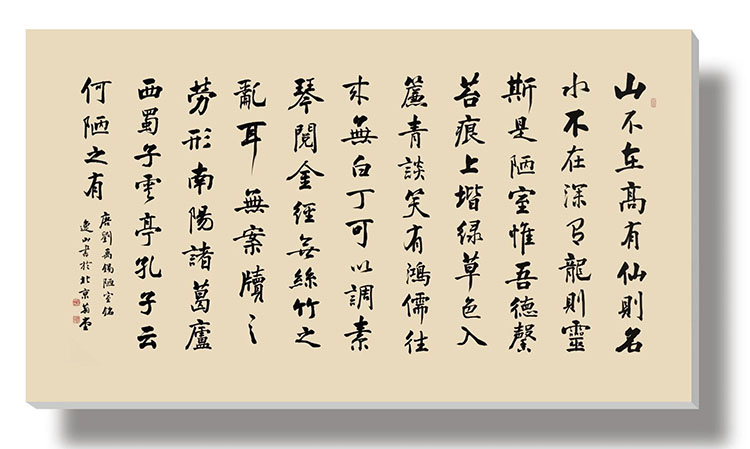 山不在高有仙則名
水不在深有龍則靈
斯是陋室惟吾德馨
苔痕上堦绿草色入
簾青談笑有鴻儒往
来無白丁可以調素
琴閲金經無絲竹之
亂耳無案牘之
勞形南陽諸葛廬
西蜀子雲亭孔子云
何陋之有
唐劉禹錫陋室銘
逸山書於北京